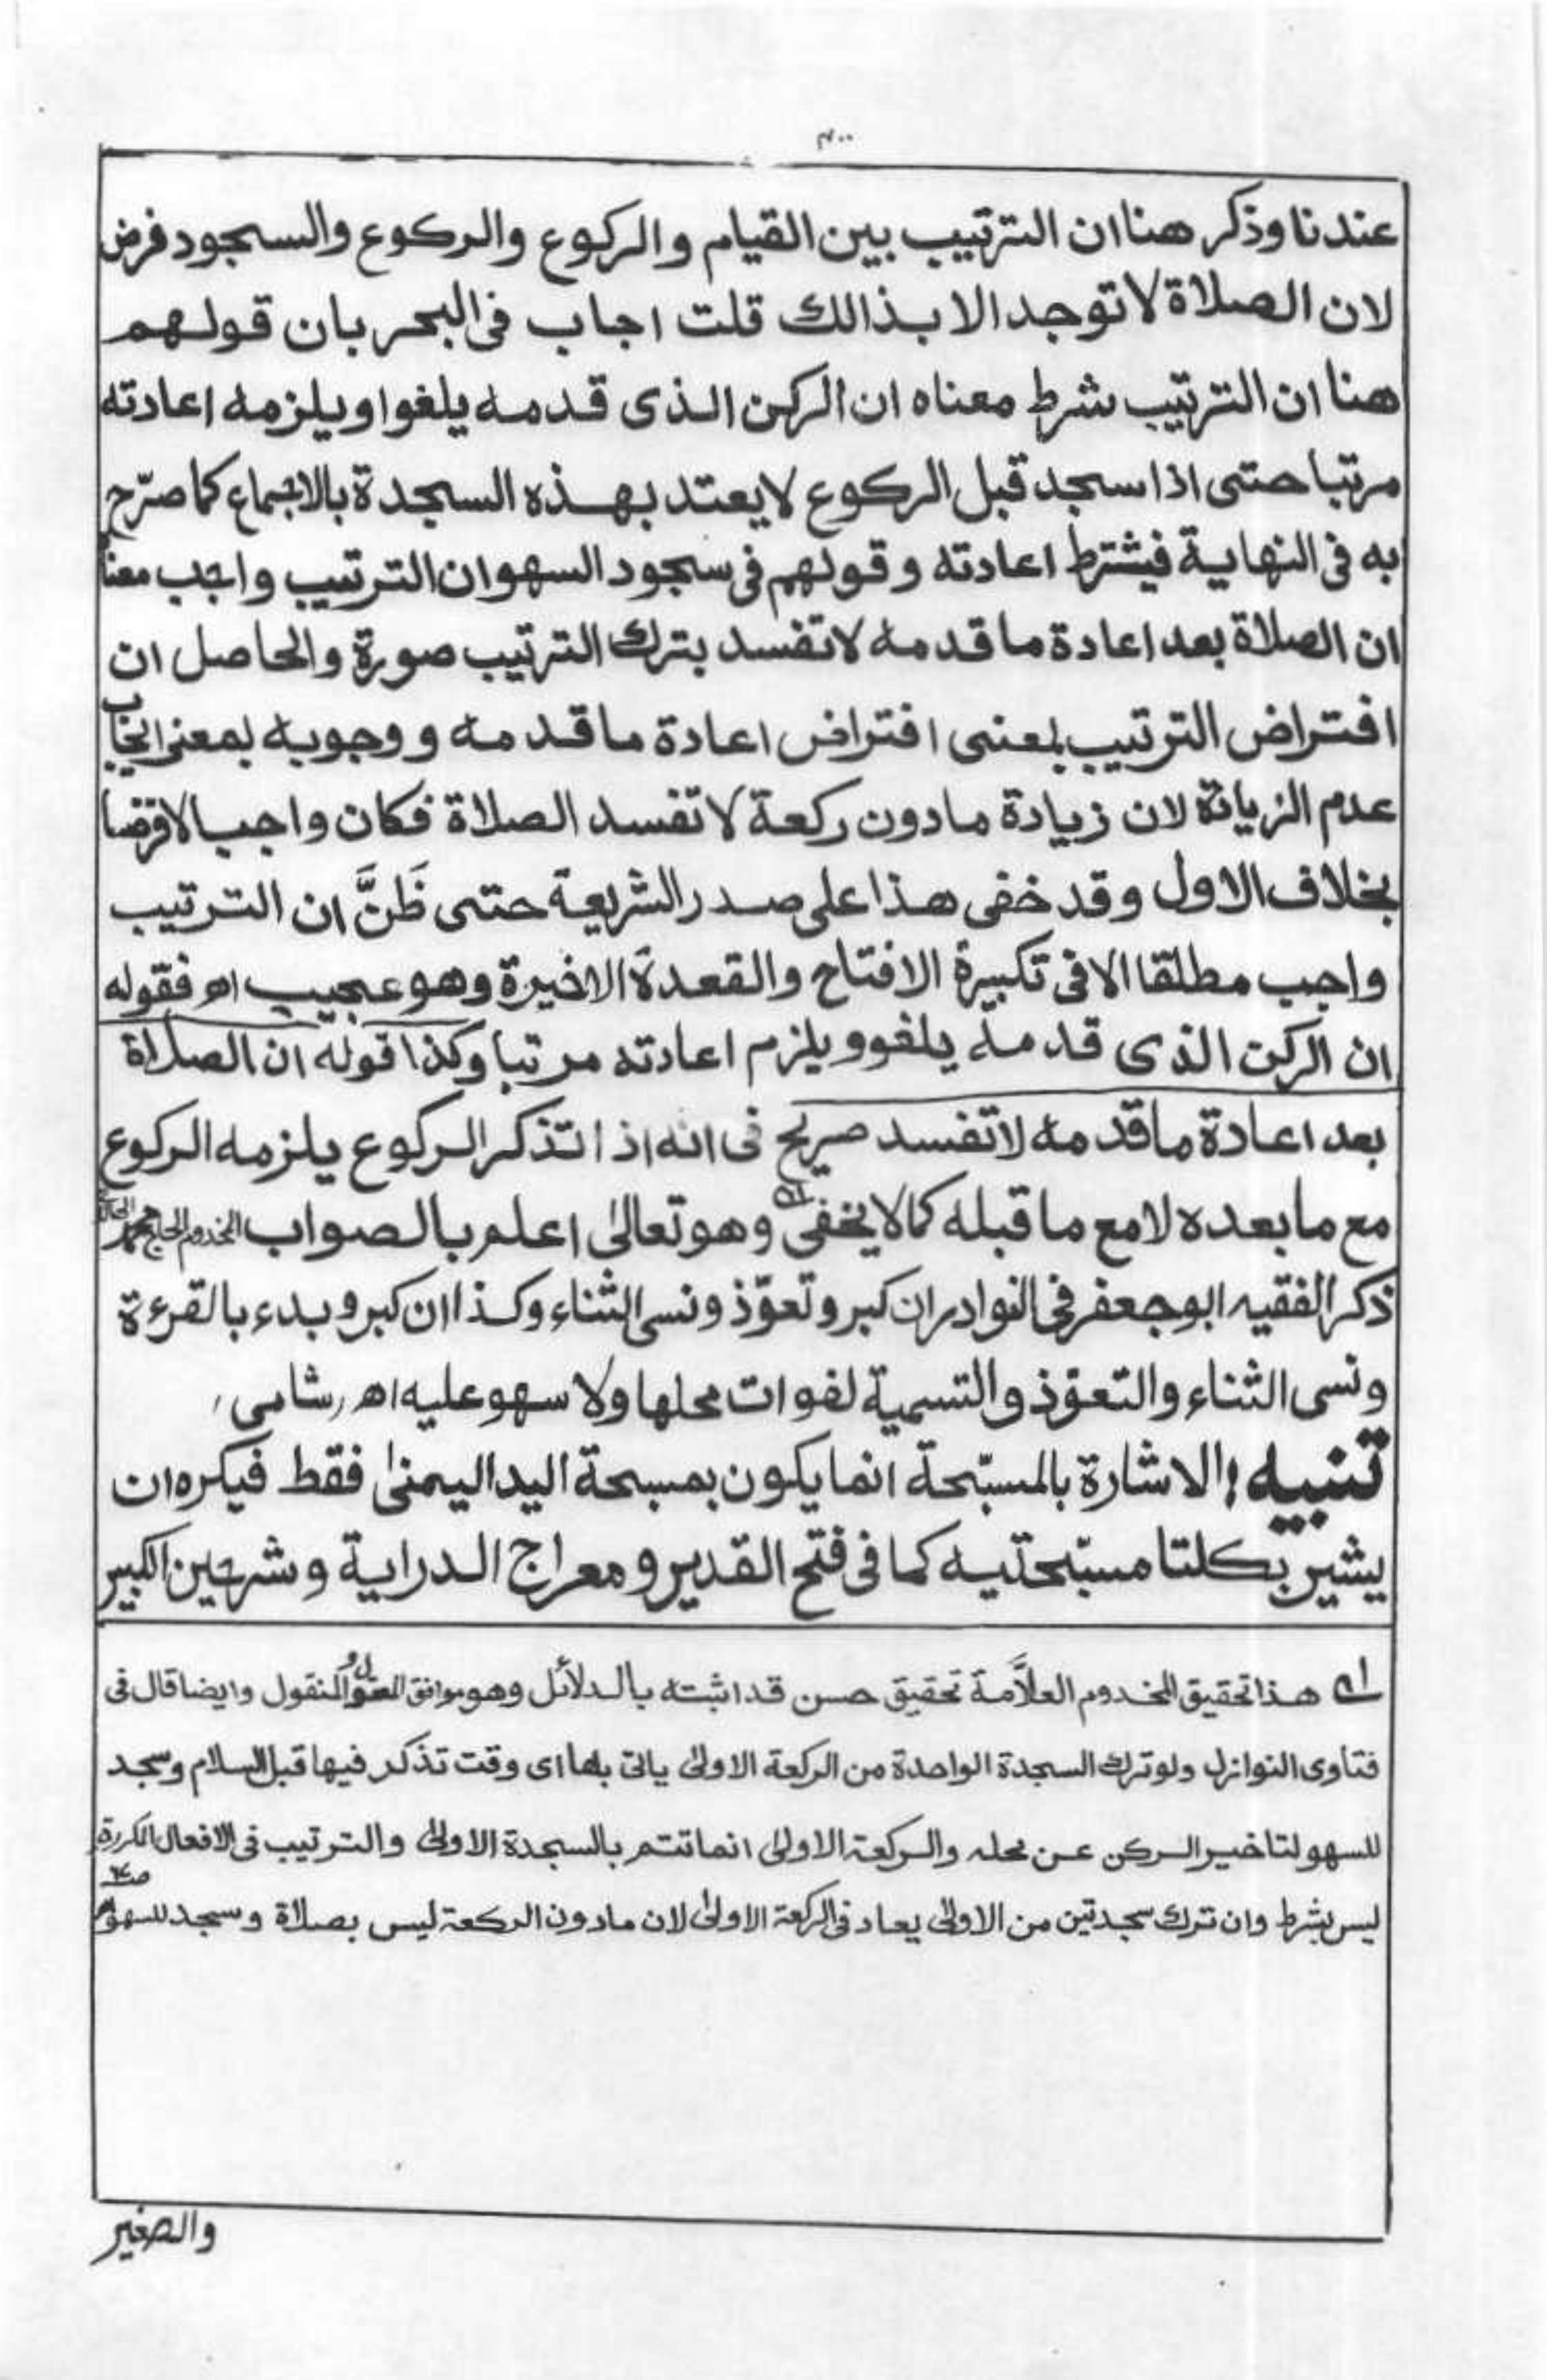 ٣٠٠
عندنا وذكر هنا ان الترتيب بين القيام والركوع والركوع والسجود فرض
لان الصلاة لا توجد الا بذالك قلت اجاب فى البحر بان قولهم
هنا ان الترتيب شرط معناه ان الركن الذى قدمه يلغوا ويلزمه اعادته
مرتبا حتى اذا سجد قبل الركوع لا يعتد بهذه السجدة بالاجماع كما صرّح
به فى النهاية فيشترط اعادته وقولهم فى سجود السهو ان الترتيب واجب معناه
ان الصلاة بعد اعادة ما قدمه لا تفسد بترك الترتيب صورة والحاصل ان
افتراض الترتيب بمعنى افتراض اعادة ما قدمه ووجوبه بمعنى ايجاب
عدم الزيادة لان زيادة ما دون ركعة لا تفسد الصلاة فكان واجبا لا فرضا
بخلاف الاول وقد خفى هذا على صدر الشريعة حتى ظَنَّ ان الترتيب
واجب مطلقا الا فى تكبيرة الافتتاح والقعدة الاخيرة وهو عجيب اھ فقوله
ان الركن الذى قدمه يلغو ويلزم اعادته مرتبا وكذا قوله ان الصلاة
بعد اعادة ما قدمه لا تفسد صريح فى انه اذا تذكر الركوع يلزمه الركوع
مع ما بعده لا مع ما قبله كما لا يخفى وهو تعالىٰ اعلم بالصواب المخدوم الحاج محمد
ذكر الفقيه ابو جعفر فى النوادر ان كبر وتعوّذ ونسى الثناء وكذا ان كبر وبدء بالقرءة
ونسى الثناء والتعوّذ والتسمية لفوات محلها ولا سهو عليه اھ، شامى،
تنبيه! الاشارة بالمسبّحة انما يكون بمسبحة اليد اليمنىٰ فقط فيكره ان
يشير بكلتا مسبّحتيه كما فى فتح القدير ومعراج الدراية وشرحين الكبير
١ھ هذا تحقيق المخدوم العلاَّمة تحقيق حسن قد اثبته بالدلائل وهو موافق المعقول والمنقول وايضا قال فى
فتاوى النوازل ولو ترك السجدة الواحدة من الركعة الاولىٰ ياتى بها اى وقت تذكر فيها قبل السلام وسجد
للسهو لتاخير الركن عن محله والركعة الاولىٰ انما تتم بالسجدة الاولىٰ والترتيب فى الافعال المكررة
ليس بشرط وان ترك سجدتين من الاولىٰ يعاد فى الركعة الاولىٰ لان ما دون الركعة ليس بصلاة وسجد للسهو اھ
والصغير